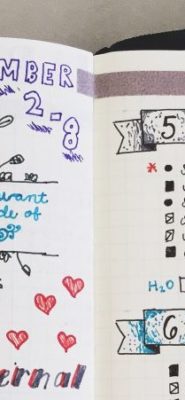 MBER
2-8
want
de of
ernal
5
H₂O
6